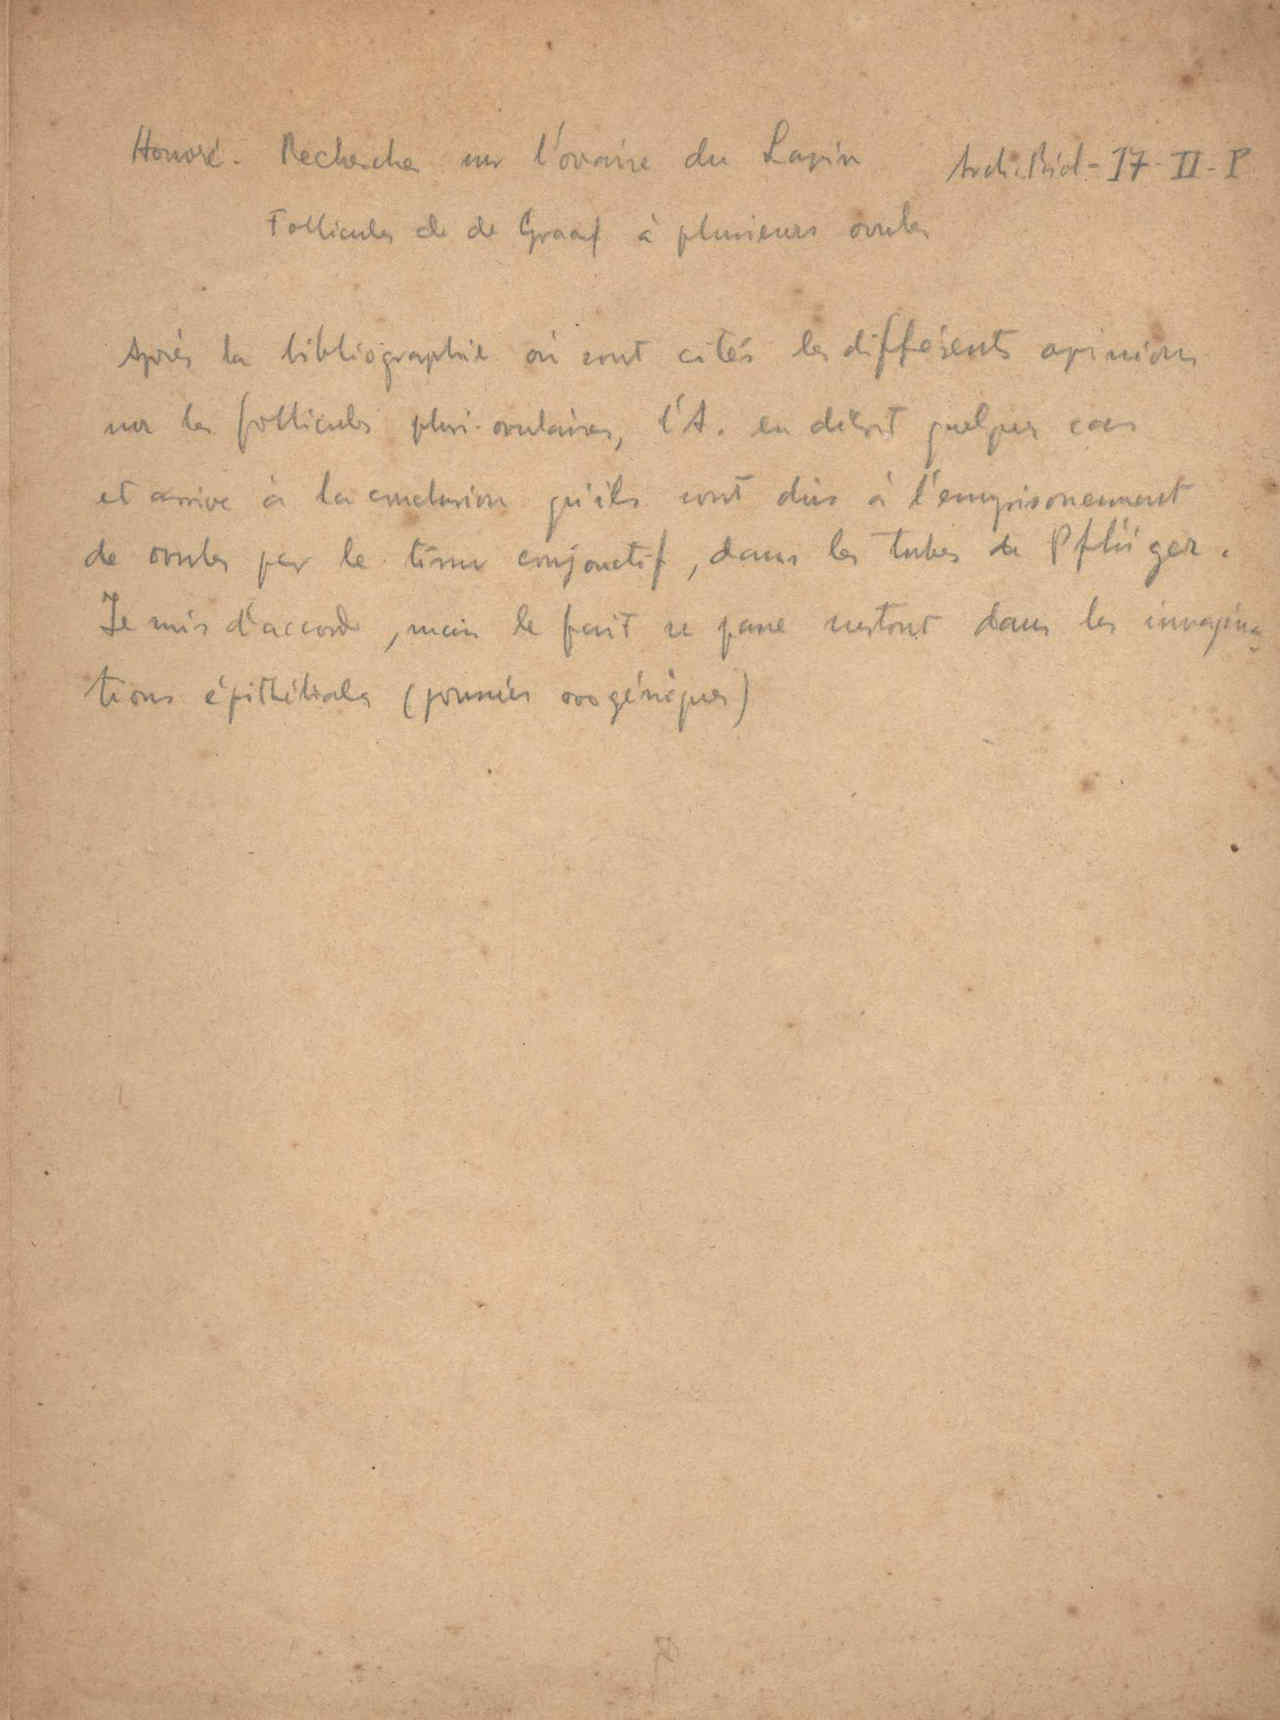 Honoré. Recherches sur l'ovaire du Lapin Arch. Biol - 17 - II - P
Follicules de de Graaf à plusieurs ovules
Après la bibliographie où sont cités les différents opinions
sur les follicules pluri-ovulaires, l'A. en décrit quelques cas
et arrive à la conclusion qu'ils sont dûs à l'emprisonnement
de ovules par le tissu conjonctif, dans les tubes de Pflüger.
Je suis d'accord, mais le fait se passe surtout dans les invagina-
tions épithéliales (poussées ovogéniques)